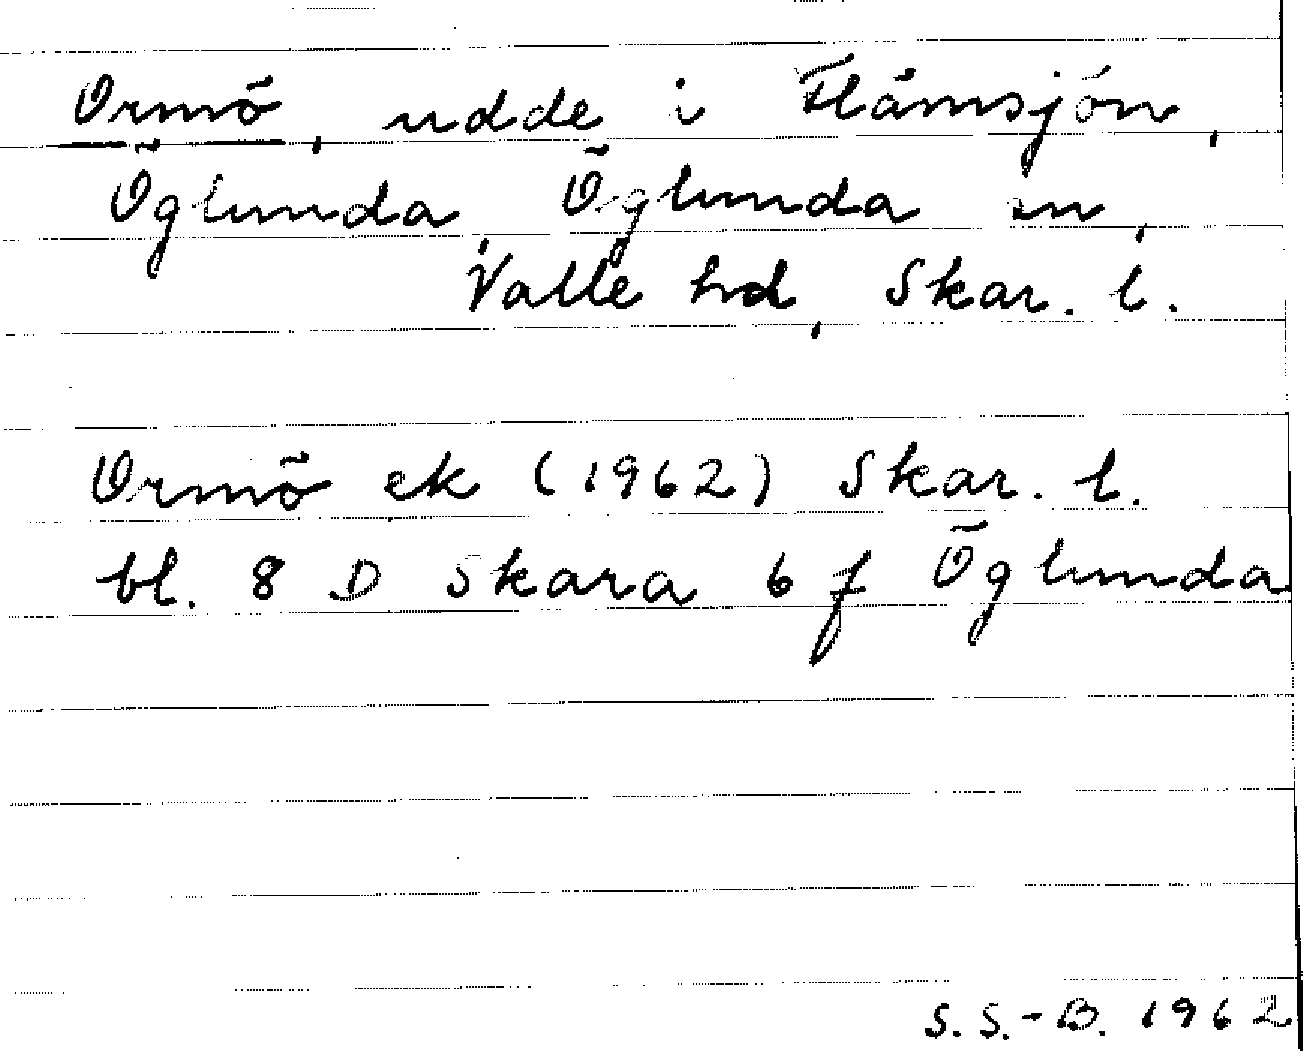 Ormö, udde i Flämsjön,
Öglunda, Öglunda sn,
Valle hd, Skar. l.
Ormö ek (1962) Skar. l.
bl. 8 D Skara 6 f Öglunda
S. S.-B. 1962